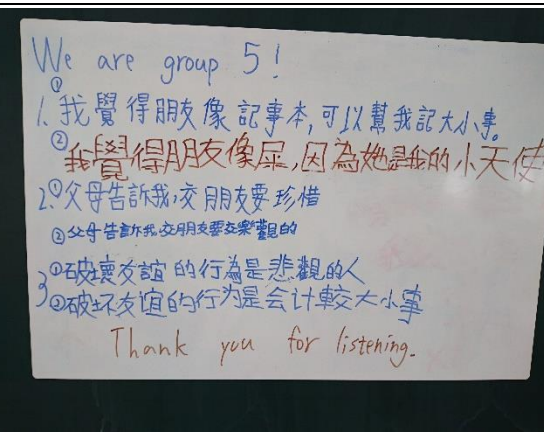 We are group 5!
1.①我覺得朋友像記事本,可以幫我記大小事。
②我覺得朋友像屎,因為她是我的小天使
2.①父母告訴我,交朋友要珍惜
②父母告訴我交朋友要交樂觀的
3①破壞友誼的行為是悲觀的人
②破坏友谊的行为是会计較大小事
Thank you for listening.